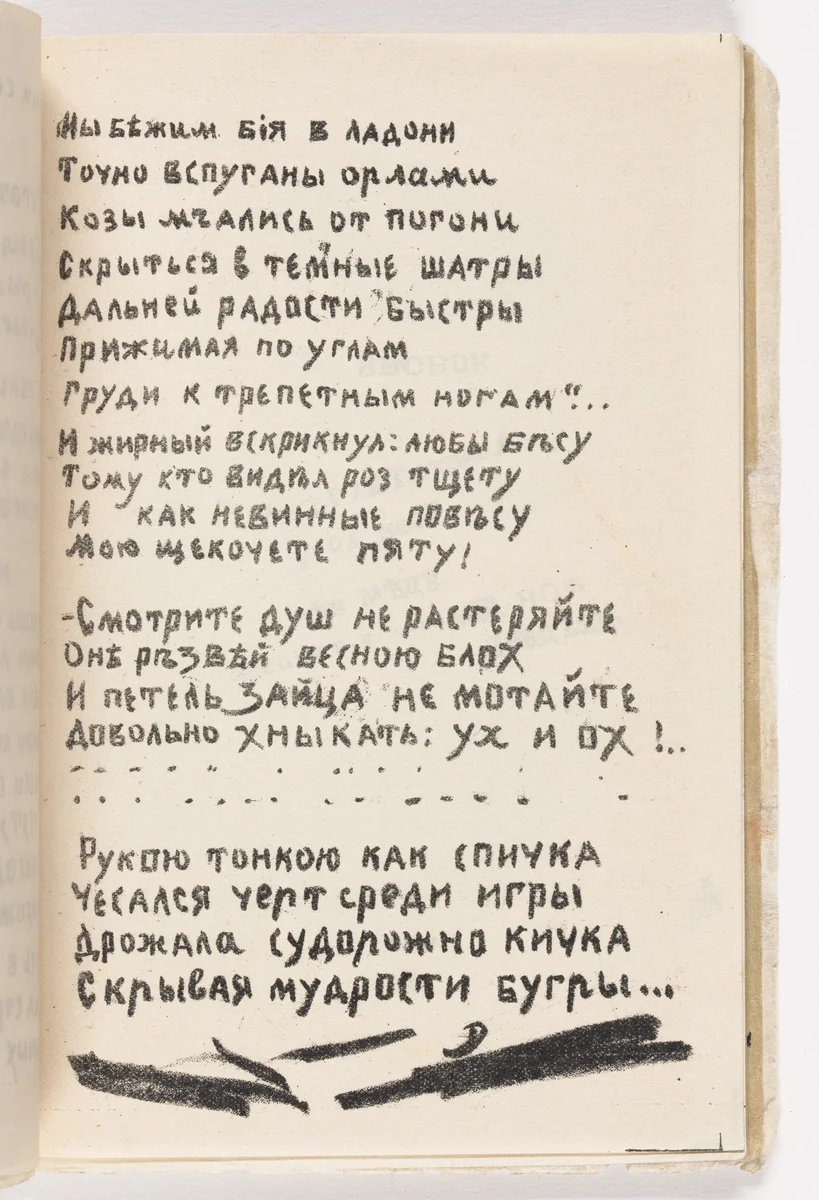 Мы бѣжим бія в ладони
Точно вспуганы орлами
Козы мчались от погони
Скрыться в темные шатры
Дальней радости быстры
Прижимая по углам
Груди к трепетным ногам"...
И жирный вскрикнул: любы бѣсу
Тому кто видѣл роз тщету
И как невинные повѣсу
Мою щекочете пяту!
-Смотрите душ не растеряйте
Онѣ рѣзвѣй весною блох
И петель зайца не мотайте
Довольно хныкать: ух и ох !..
Рукою тонкою как спичка
Чесался черт среди игры
Дрожала судорожно кичка
Скрывая мудрости бугры...